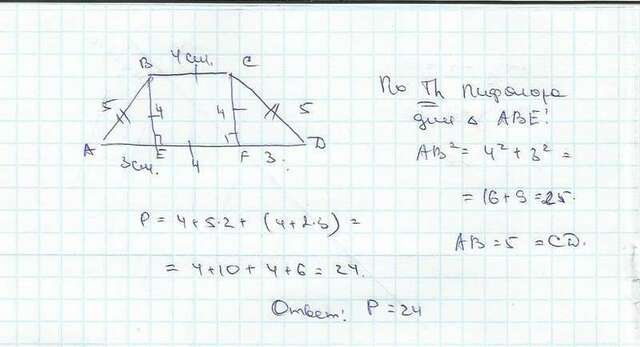 B 4 см. C
5 4 4 5
A E F D
3 см. 4 3
По Th Пифагора
для △ ABE:
AB² = 4² + 3² =
= 16 + 9 = 25.
AB = 5 = CD.
P = 4 + 5·2 + (4 + 2·3) =
= 4 + 10 + 4 + 6 = 24.
Ответ: P = 24